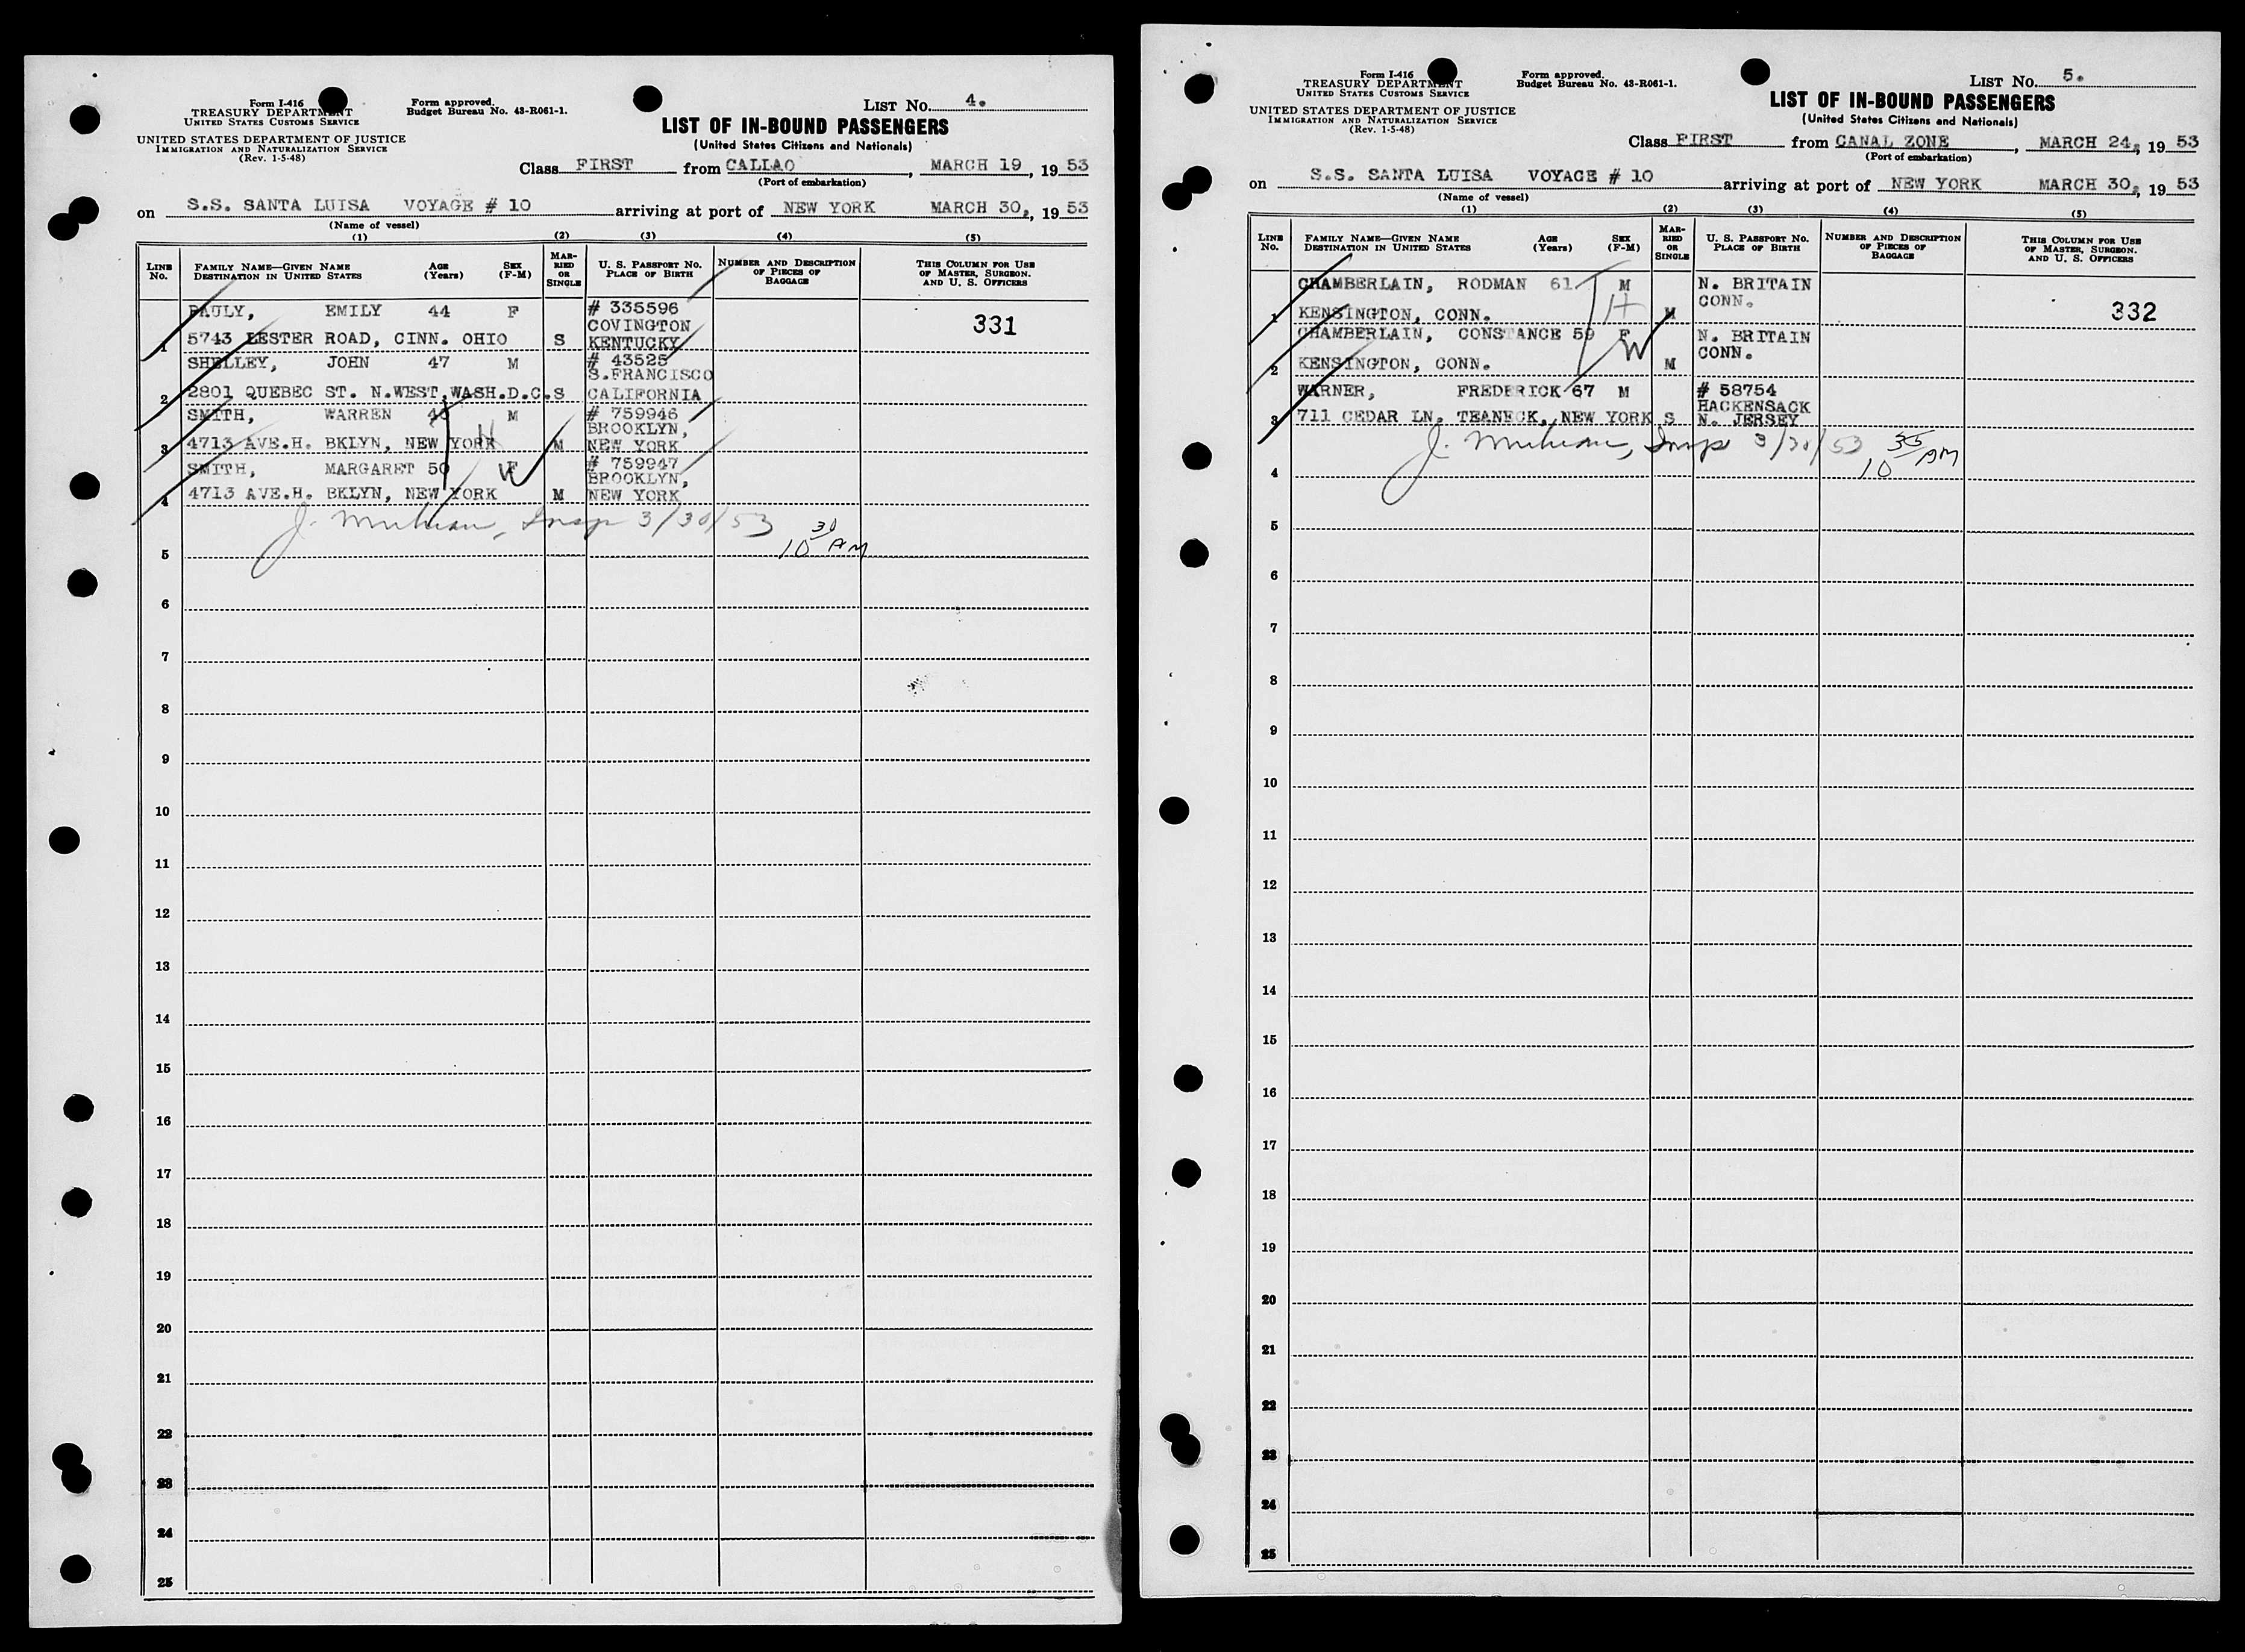 Form I-416
TREASURY DEPARTMENT
UNITED STATES CUSTOMS SERVICE
UNITED STATES DEPARTMENT OF JUSTICE
IMMIGRATION AND NATURALIZATION SERVICE
(Rev. 1-5-48)
Form approved.
Budget Bureau No. 43-R061-1.
LIST No. 4.
LIST OF IN-BOUND PASSENGERS
(United States Citizens and Nationals)
Class FIRST from CALLAO, MARCH 19, 1953
(Port of embarkation)
on S.S. SANTA LUISA VOYAGE # 10 arriving at port of NEW YORK MARCH 30, 1953
(Name of vessel)
(1) (2) (3) (4) (5)
LINE No.
FAMILY NAME—GIVEN NAME
DESTINATION IN UNITED STATES
AGE (Years)
SEX (F-M)
MARRIED OR SINGLE
U. S. PASSPORT No.
PLACE OF BIRTH
NUMBER AND DESCRIPTION OF PIECES OF BAGGAGE
THIS COLUMN FOR USE OF MASTER, SURGEON, AND U. S. OFFICERS
PAULY, EMILY 44 F # 335596
COVINGTON 331
1 5743 LESTER ROAD, CINN. OHIO S KENTUCKY
SHELLEY, JOHN 47 M # 43525
S.FRANCISCO
2 2801 QUEBEC ST. N.WEST,WASH.D.C. S CALIFORNIA
SMITH, WARREN M # 759946
BROOKLYN,
3 4713 AVE.H. BKLYN, NEW YORK H M NEW YORK
SMITH, MARGARET 50 F W # 759947
BROOKLYN,
4 4713 AVE.H. BKLYN, NEW YORK M NEW YORK
J. Insp 3/30/53 10 30 AM
5
6
7
8
9
10
11
12
13
14
15
16
17
18
19
20
21
22
23
24
25
Form I-416
TREASURY DEPARTMENT
UNITED STATES CUSTOMS SERVICE
UNITED STATES DEPARTMENT OF JUSTICE
IMMIGRATION AND NATURALIZATION SERVICE
(Rev. 1-5-48)
Form approved.
Budget Bureau No. 43-R061-1.
LIST No. 5.
LIST OF IN-BOUND PASSENGERS
(United States Citizens and Nationals)
Class FIRST from CANAL ZONE, MARCH 24, 1953
(Port of embarkation)
on S.S. SANTA LUISA VOYAGE # 10 arriving at port of NEW YORK MARCH 30, 1953
(Name of vessel)
(1) (2) (3) (4) (5)
LINE No.
FAMILY NAME—GIVEN NAME
DESTINATION IN UNITED STATES
AGE (Years)
SEX (F-M)
MARRIED OR SINGLE
U. S. PASSPORT No.
PLACE OF BIRTH
NUMBER AND DESCRIPTION OF PIECES OF BAGGAGE
THIS COLUMN FOR USE OF MASTER, SURGEON, AND U. S. OFFICERS
CHAMBERLAIN, RODMAN 61 M N. BRITAIN
CONN.
1 KENSINGTON, CONN. H M 332
CHAMBERLAIN, CONSTANCE 59 F W N. BRITAIN
CONN.
2 KENSINGTON, CONN. M
WARNER, FREDERICK 67 M # 58754
HACKENSACK
3 711 CEDAR LN. TEANECK, NEW YORK S N. JERSEY
J. Insp 3/30/53 10 35 AM
4
5
6
7
8
9
10
11
12
13
14
15
16
17
18
19
20
21
22
23
24
25